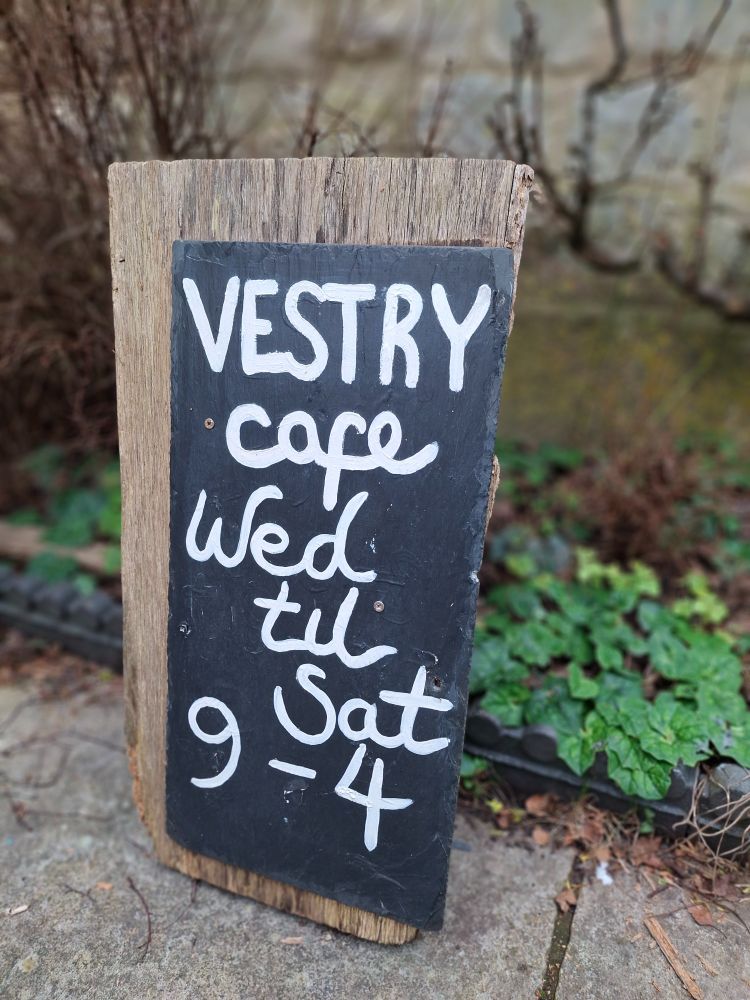 VESTRY
cafe
Wed
til
Sat
9-4